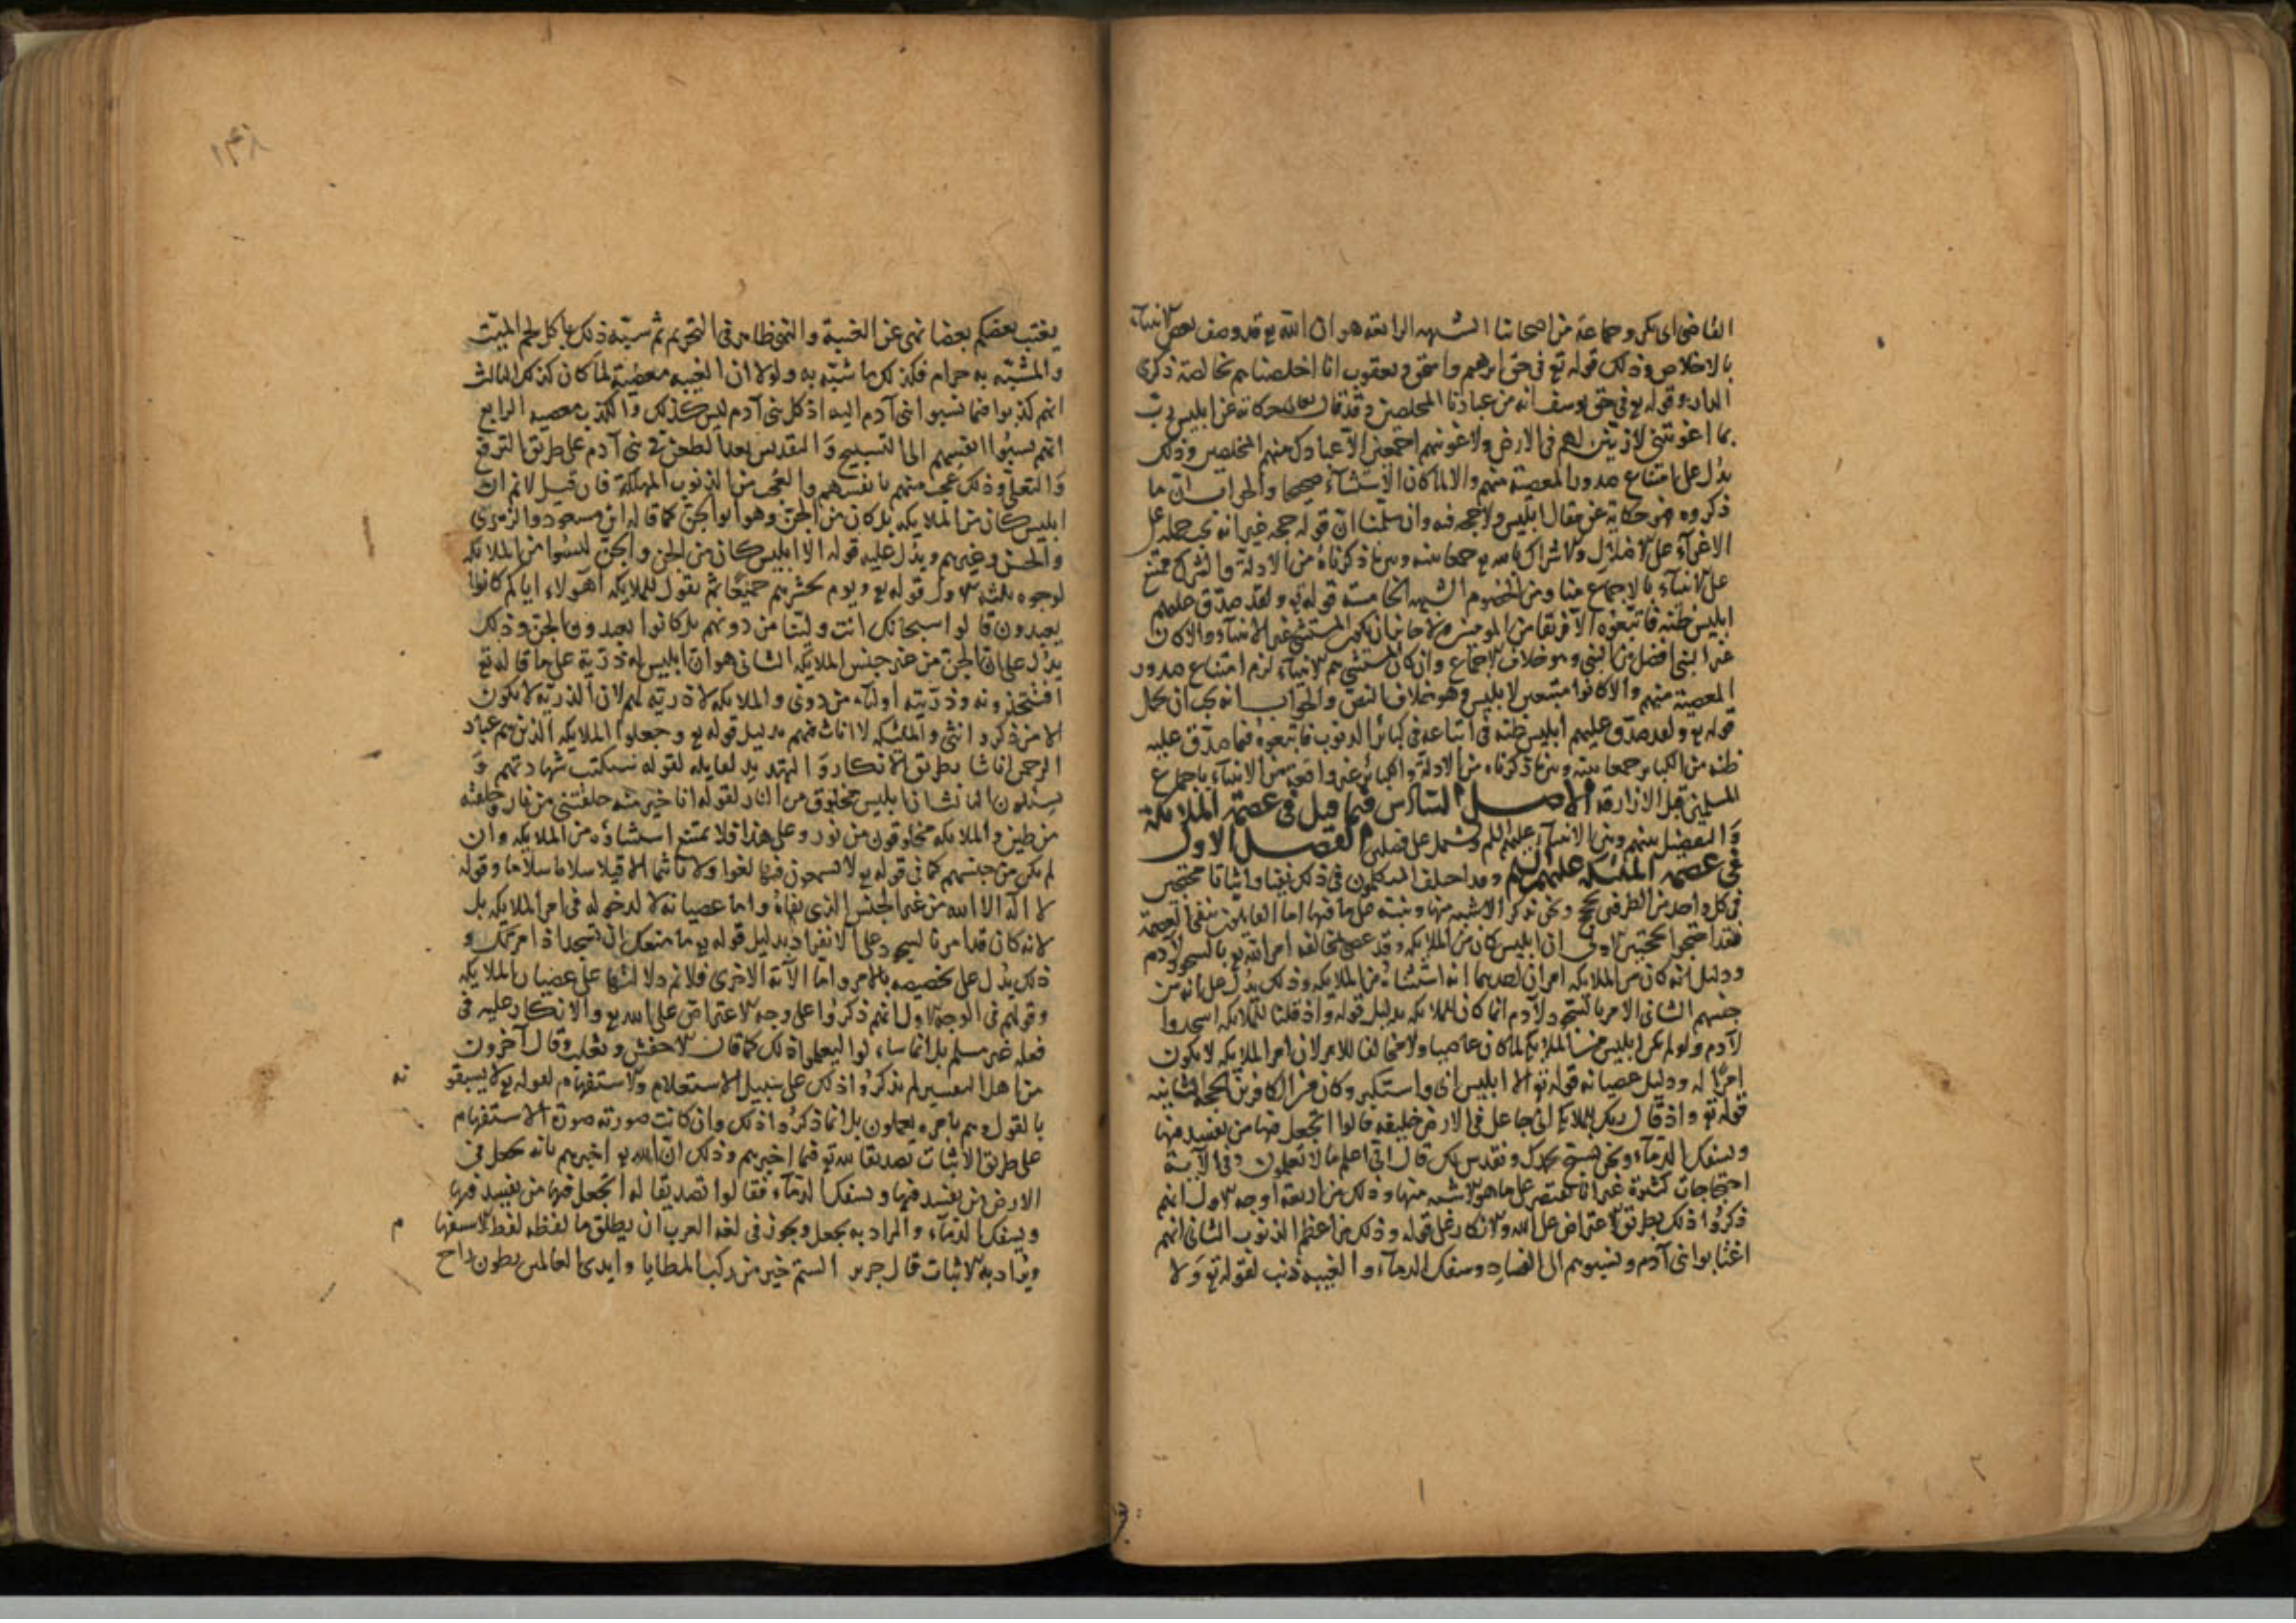 القاضى ابى بكر وجماعة من اصحابنا الشبهه الرابعة هو ان الله تع قد وصف بعض الانبياء
بالاخلاص وذلك قوله تع فى حق ابرهيم واسحق ويعقوب انا اخلصناهم بخالصة ذكرى
الدار وقوله تع فى حق يوسف انه من عبادنا المخلصين وقد قال تعالى حكاية عن ابليس رب
بما اغويتنى لازينن لهم فى الارض ولاغوينهم اجمعين الا عبادك منهم المخلصين وذلك
يدل على امتناع صدور المعصية منهم والا لما كان الاستثناء صحيحا والجواب ان ما
ذكروه هو حكاية عن مقال ابليس ولا حجه فيه وان سلمنا ان قوله حجه غير انه يجب حمله على
الاغوآء على الاضلال والاشراك بالله تع جمعا بينه وبين ما ذكرناه من الادلة والشرك ممتنع
على الانبيآء بالاجماع منا ومن الخصوم الشبهه الخامسة قوله تع ولقد صدق عليهم
ابليس ظنه فاتبعوه الا فريقا من المومنين فان كان المستثنى غير الانبيآء والا كان
غير النبى افضل من النبى وهو خلاف الاجماع وان كان المستثنى هم الانبيآء لزم امتناع صدور
المعصية منهم والا كانوا متبعين لابليس وهو خلاف النص والجواب انه يجب ان يحمل
قوله تع ولقد صدق عليهم ابليس ظنه فى اتباعه فى كبائر الذنوب فاتبعوه فيما صدق عليه
ظنه من الكبائر جمعا بينه وبين ما ذكرناه من الادلة والكبائر غير واقعة من الانبيآء باجماع
المسلمين قبل الازارقة الاصل السادس فيما قيل فى عصمة الملائكة
والتفضيل بينهم وبين الانبيآء عليهم السلم ويشتمل على فصلين الفصل الاول
فى عصمة الملئكه عليهم السلم وقد اختلف المتكلمون فى ذلك نفيا واثباتا محتجين
فى كل واحد من الطرفين بحجج ونحن نذكر الاشبه منها وننبه على ما فيها اما القايلون بنفى العصمة
فقد احتجوا بحجتين الاولى ان ابليس كان من الملايكه وقد عصى بمخالفة امر الله تع بالسجود لآدم
ودليل انه كان من الملايكه امران احدهما انه استثناه من الملايكه وذلك يدل على انه من
جنسهم الثانى الامر بالسجود لآدم انما كان للملايكه بدليل قوله واذ قلنا للملايكه اسجدوا
لآدم ولو لم يكن ابليس من الملايكه لما كان عاصيا ولا مخالفا للامر لان امر الملايكه لا يكون
امرًا له ودليل عصيانه قوله تع الا ابليس ابى واستكبر وكان من الكافرين الحجة الثانيه
قوله تع واذ قال ربك للملايكه انى جاعل فى الارض خليفه قالوا اتجعل فيها من يفسد فيها
ويسفك الدمآء ونحن نسبح بحمدك ونقدس لك قال انى اعلم ما لا تعلمون وفى الآية
احتجاجات كثيرة غير انا نقتصر على ما هو الاشبه منها وذلك من اربعة اوجه الاول انهم
ذكروا ذلك بطريق الاعتراض على الله والانكار على قوله وذلك من اعظم الذنوب الثانى انهم
اغتابوا بنى آدم ونسبوهم الى الفساد وسفك الدمآء والغيبه ذنب لقوله تع ولا
١٤٨
يغتب بعضكم بعضا نهى عن الغيبة والنهى ظاهر فى التحريم ثم شبه ذلك باكل لحم الميت
والمشبه به حرام فكذلك ما شبه به ولولا ان الغيبه معصية لما كان كذلك الثالث
انهم كذبوا فيما نسبوا بنى آدم اليه اذ كل بنى آدم ليس كذلك والكذب معصيه الرابع
انهم نسبوا انفسهم الى التسبيح والتقديس بعد الطعن فى بنى آدم على طريق الترفع
والتعلى وذلك عجب منهم بانفسهم والعجب من الذنوب المهلكة فان قيل لا نم ان
ابليس كان من الملايكه بل كان من الجن وهو ابو الجن كما قاله ابن مسعود والزهرى
والحسن وغيرهم ويدل عليه قوله الا ابليس كان من الجن والجن ليسوا من الملايكه
لوجوه ثلثه الاول قوله تع ويوم نحشرهم جميعًا ثم نقول للملايكه اهولاء اياكم كانوا
يعبدون قالوا سبحانك انت ولينا من دونهم بل كانوا يعبدون الجن وذلك
يدل على ان الجن من غير جنس الملايكه الثانى هو ان ابليس له ذرية على ما قاله تع
افتتخذونه وذريته اوليآء من دونى والملايكه لا ذرية لهم لان الذرية لا يكون
الا من ذكر وانثى والملئكه لا اناث فيهم بدليل قوله تع وجعلوا الملايكه الذين هم عباد
الرحمن اناثا بطريق الانكار والتهديد لقايله لقوله ستكتب شهادتهم و
يسئلون الثالث ان ابليس مخلوق من النار لقوله انا خير منه خلقتنى من نار وخلقته
من طين والملايكه مخلوقون من نور وعلى هذا فلا يمتنع استثناؤه من الملايكه وان
لم يكن من جنسهم كما فى قوله تع لا يسمعون فيها لغوا ولا تاثيما الا قيلا سلاما سلاما وقوله
لا اله الا الله من غير الجنس الذى نفاه واما عصيانه لا لدخوله فى امر الملايكه بل
لانه كان قد امر بالسجود على الانفراد بدليل قوله تع ما منعك ان لا تسجد اذ امرتك و
ذلك يدل على تخصيصه بالامر واما الآية الاخرى فلا نم دلالتها على عصيان الملايكه
وقولهم فى الوجه الاول انهم ذكروا على وجه الاعتراض على الله تع والانكار عليه فى
فعله غير مسلم بل انما قالوا ليعلموا ذلك كما قال الاخفش وثعلب وقال آخرون
من اهل التفسير لم يذكروا ذلك على سبيل الاستعلام والاستفهام لقوله تع لا يسبقونه
بالقول وهم بامره يعملون بل انما ذكروا ذلك وان كانت صورته صورة الاستفهام
على طريق الاثبات تصديقا لله تع فيما اخبرهم وذلك ان الله تع اخبرهم بانه يجعل فى
الارض من يفسد فيها ويسفك الدمآء فقالوا تصديقا له اتجعل فيها من يفسد فيها
ويسفك الدمآء والمراد به يجعل ويجوز فى لغة العرب ان يطلق ما لفظه لفظ الاستفهام
ويراد به الاثبات قال جرير الستم خير من ركب المطايا واندى العالمين بطون راح